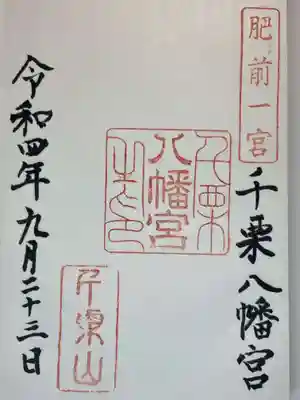 肥前一宮
千栗八幡宮
千栗
八幡宮
之印
令和四年九月二十三日